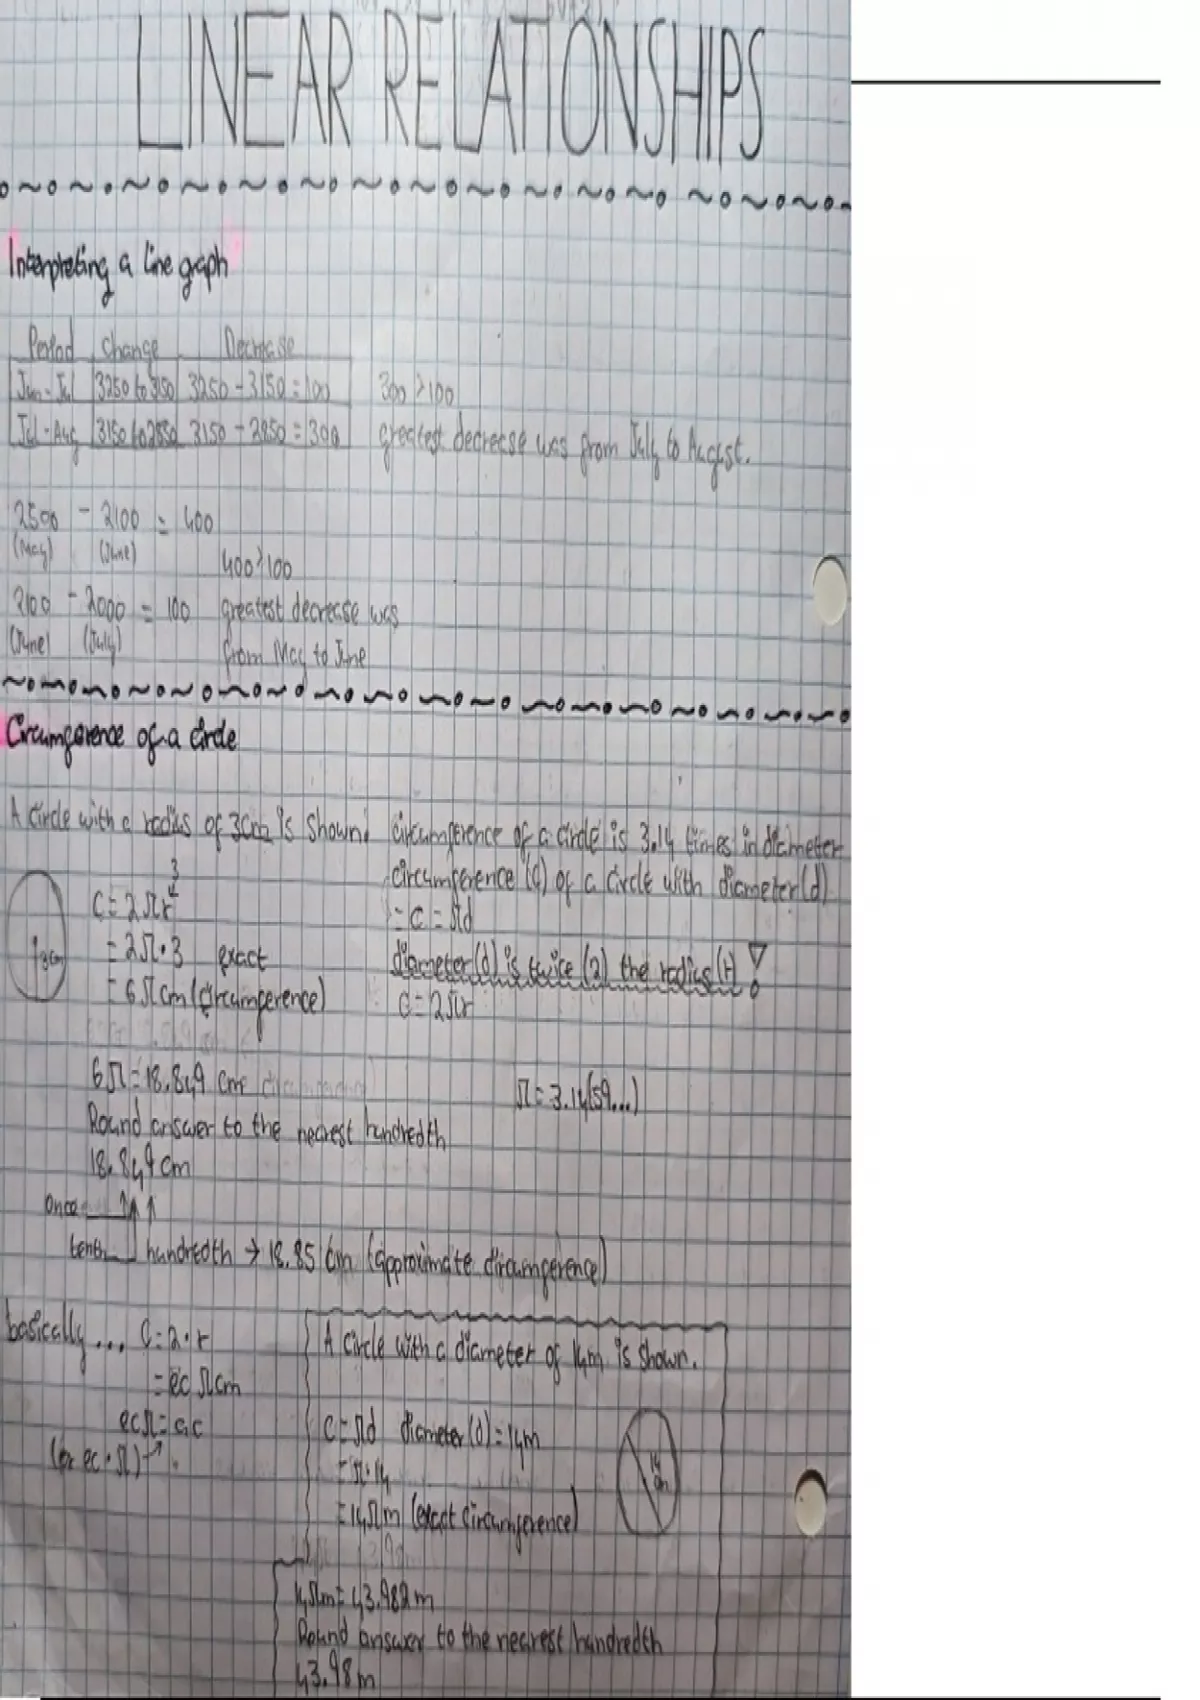 LINEAR RELATIONSHIPS
Interpreting a line graph
Period Change Decrease
Jun-Jul 3250 to 3150 3250 - 3150 = 100 300 > 100
Jul-Aug 3150 to 2850 3150 - 2850 = 300 greatest decrease was from July to August.
2500 - 2100 = 400
(May) (June) 400 > 100
2100 - 2000 = 100 greatest decrease was
(June) (July) from May to June
Circumference of a circle
A circle with a radius of 3cm is shown.
3
C = 2πr
= 2π·3 exact
= 6πcm (circumference)
3cm
circumference of a circle is 3.14 times in diameter
circumference (c) of a circle with diameter (d)
= C = πd
diameter (d) is twice (2) the radius (r)!
C = 2πr
6π = 18.849 cm
π = 3.14(59...)
Round answer to the nearest hundredth
18.849 cm
once
tenth hundredth → 18.85 cm (approximate circumference)
basically... C = 2·r
= ec πcm
ecπ = ac
(or ec·π)
A circle with a diameter of 14m is shown.
C = πd diameter (d) = 14m
= π·14
= 14πm (exact circumference)
14
14πm = 43.982 m
Round answer to the nearest hundredth
43.98 m